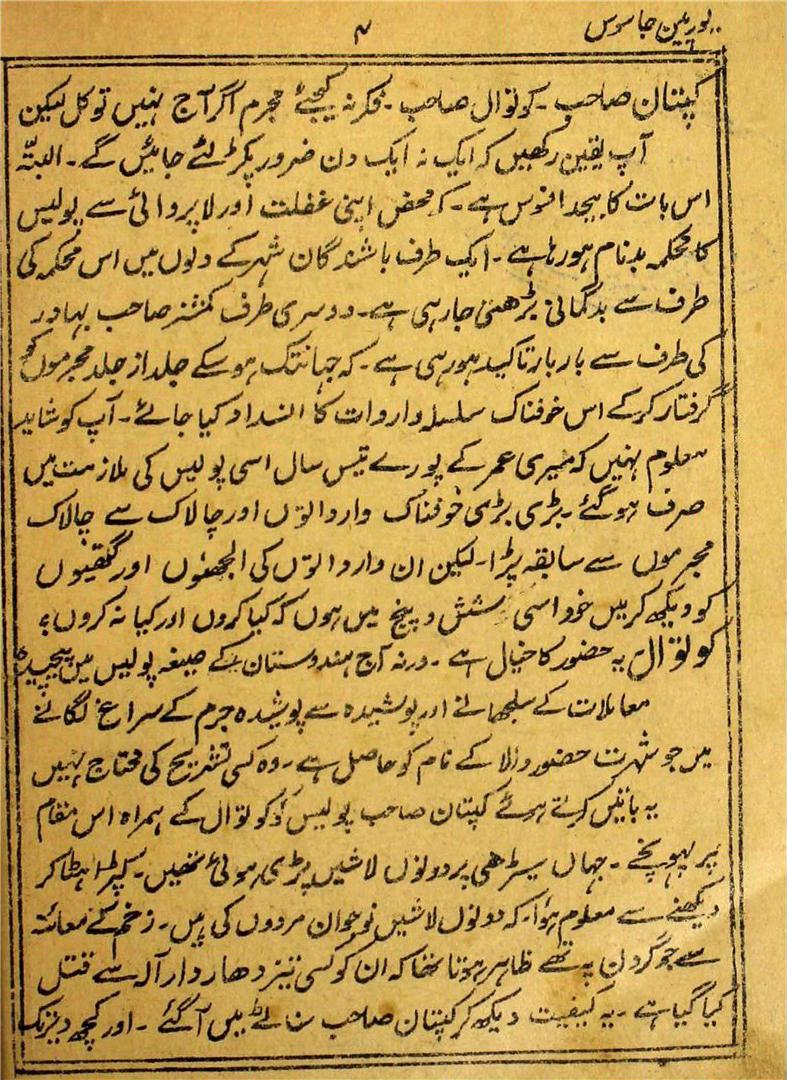 یورپین جاسوس
۴
کپتان صاحب ۔ کوتوال صاحب ۔ فکر نہ کیجئے مجرم اگر آج نہیں تو کل لیکن
آپ یقین رکھیں کہ ایک نہ ایک دن ضرور پکڑ لئے جائیں گے ۔ البتہ
اس بات کا بیحد افسوس ہے ۔ کہ محض اپنی غفلت اور لاپروائی سے پولیس
کا محکمہ بدنام ہو رہا ہے ۔ ایک طرف باشندگان شہر کے دلوں میں اس محکمہ کی
طرف سے بدگمانی بڑھتی جا رہی ہے ۔ دوسری طرف کمشنر صاحب بہادر
کی طرف سے بار بار تاکید ہو رہی ہے ۔ کہ جہانتک ہو سکے جلد از جلد مجرموں کو
گرفتار کر کے اس خوفناک سلسلہ واردات کا انسداد کیا جائے ۔ آپ کو شاید
معلوم نہیں کہ میری عمر کے پورے تیس سال اسی پولیس کی ملازمت میں
صرف ہو گئے ۔ بڑی بڑی خوفناک وارداتوں اور چالاک سے چالاک
مجرموں سے سابقہ پڑا ۔ لیکن ان وارداتوں کی الجھنوں اور گتھیوں
کو دیکھ کر میں خود اسی شش و پنج میں ہوں کہ کیا کروں اور کیا نہ کروں ؟
کوتوال یہ حضور کا خیال ہے ۔ ورنہ آج ہندوستان کے صیغہ پولیس میں پیچیدہ
معاملات کے سلجھانے اور پوشیدہ سے پوشیدہ جرم کے سراغ لگانے
میں جو شہرت حضور والا کے نام کو حاصل ہے ۔ وہ کسی تشریح کی محتاج نہیں
یہ باتیں کرتے ہوئے کپتان صاحب پولیس کوتوال کے ہمراہ اس مقام
پر پہونچے ۔ جہاں سیڑھی پر دونوں لاشیں پڑی ہوئی تھیں ۔ کپڑا ہٹا کر
دیکھنے سے معلوم ہؤا ۔ کہ دونوں لاشیں نوجوان مردوں کی ہیں ۔ زخم کے معائنہ
سے جو گردن پہ تھے ظاہر ہوتا تھا کہ ان کو کسی تیز دھار دار آلہ سے قتل
کیا گیا ہے ۔ یہ کیفیت دیکھ کر کپتان صاحب سناٹے میں آ گئے ۔ اور کچھ دیر تک